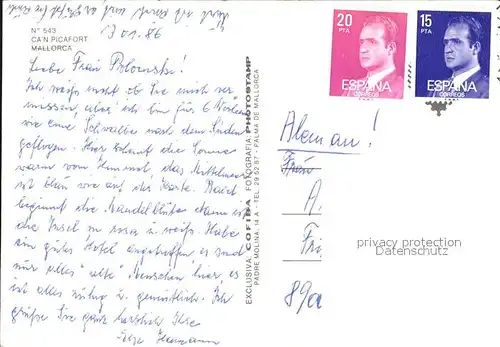 13 01. 86
Nº 543
CA'N PICAFORT
MALLORCA
Liebe Frau
Ich weiß nicht ob Sie mich ver
missen, aber ich bin für 6 Wochen
wie eine Schwalbe nach dem Süden
geflogen. Hier scheint die Sonne
warm vom Himmel, das Mittelmeer
ist blau wie auf der Karte. Bald
beginnt die Mandelblüte dann ist
die Insel in rosa u. weiß. Habe
ein gutes Hotel angetroffen es sind
nur alles "alte" Menschen hier es
ist alles ruhig u. gemütlich. Ich
grüße Sie ganz herzlich Ihre
EXCLUSIVA COFIBA FOTOGRAFIA PHOTOSTAMP
PADRE MOLINA, 14 A - TEL. 29 52 87 - PALMA DE MALLORCA
20
PTA
ESPAÑA
CORREOS
15
PTA
ESPAÑA
CORREOS
Aleman!
A.
privacy protection
Datenschutz